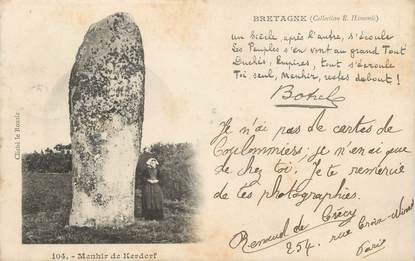 BRETAGNE (Collection E. Hamonic)
un Siècle, après l'autre, s'écoule
Les Peuples s'en vont au grand Tout
Duchés, Empires, tout s'écroule
Toi seul, Menhir, restes debout !
Botrel
Je n'ai pas de cartes de
Coulommiers; je n'en ai que
de chez toi. Je te remercie
de tes photographies.
Renaud de Crécy
254. rue Croix-Nivert
Paris
Cliché le Rouzic
104. - Menhir de Kerderf